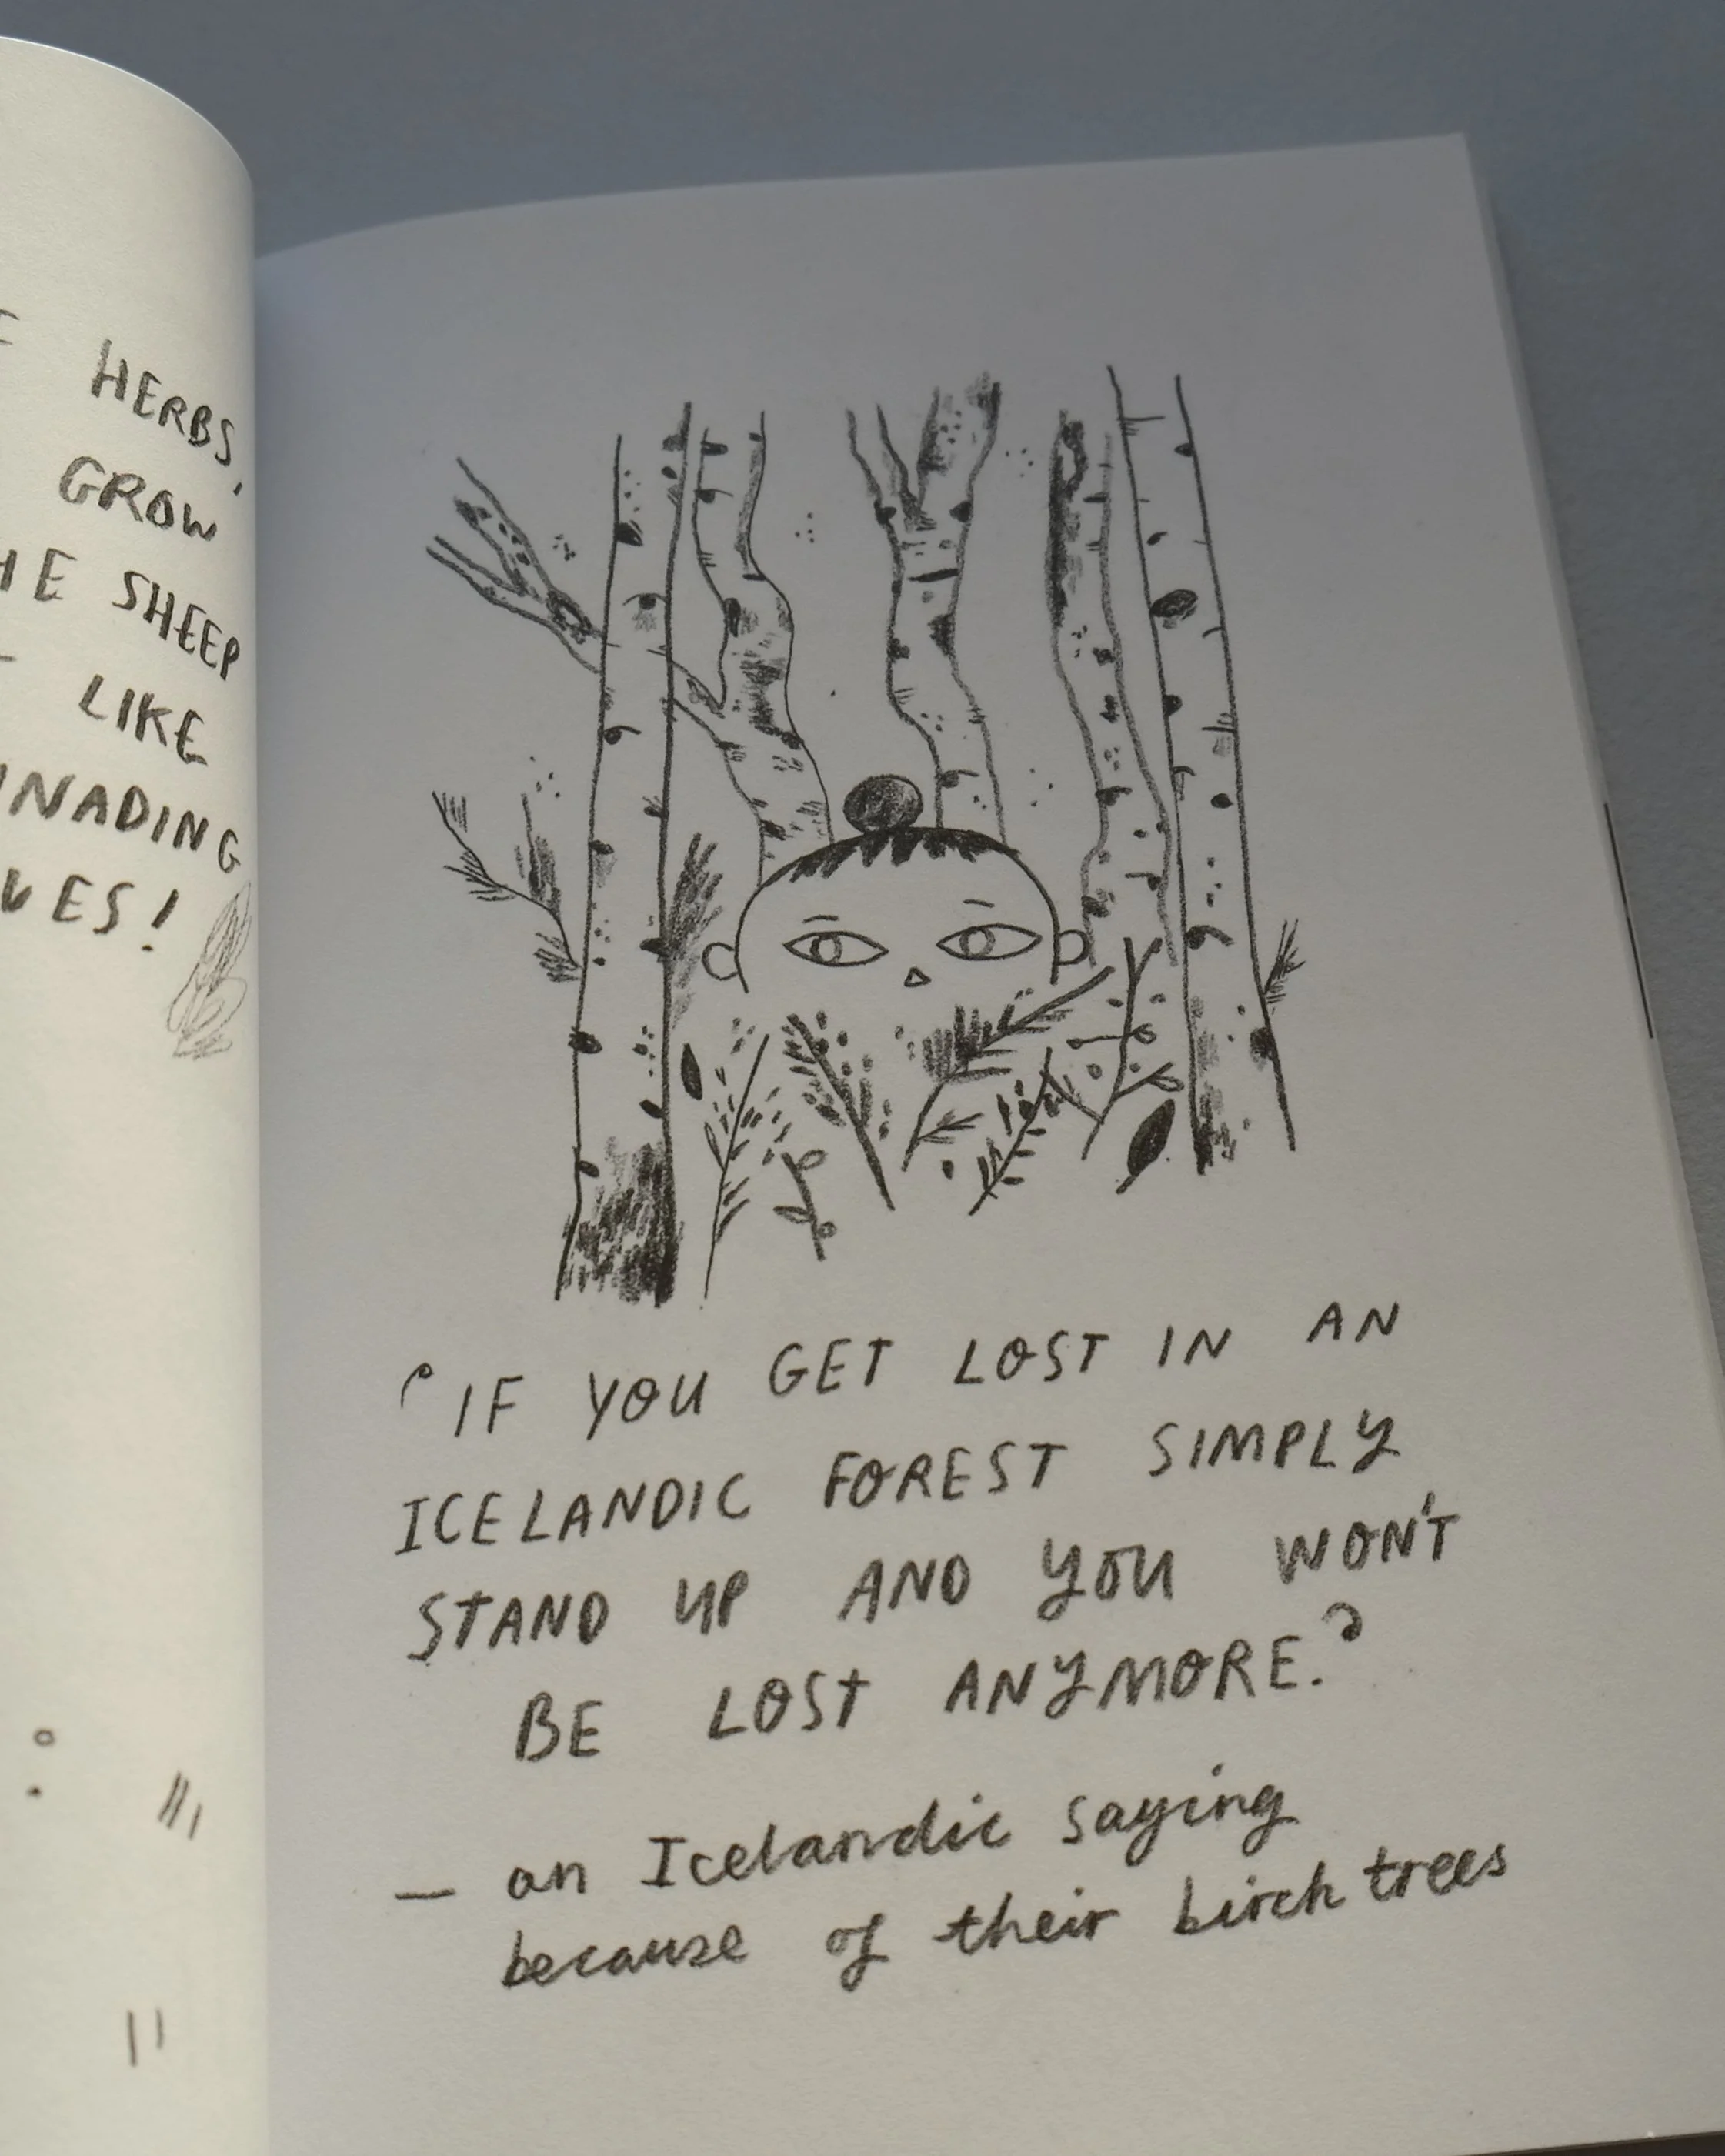 HERBS,
GROW
SHEEP
LIKE
"IF YOU GET LOST IN AN
ICELANDIC FOREST SIMPLY
STAND UP AND YOU WON'T
BE LOST ANYMORE."
— an Icelandic saying
because of their birch trees